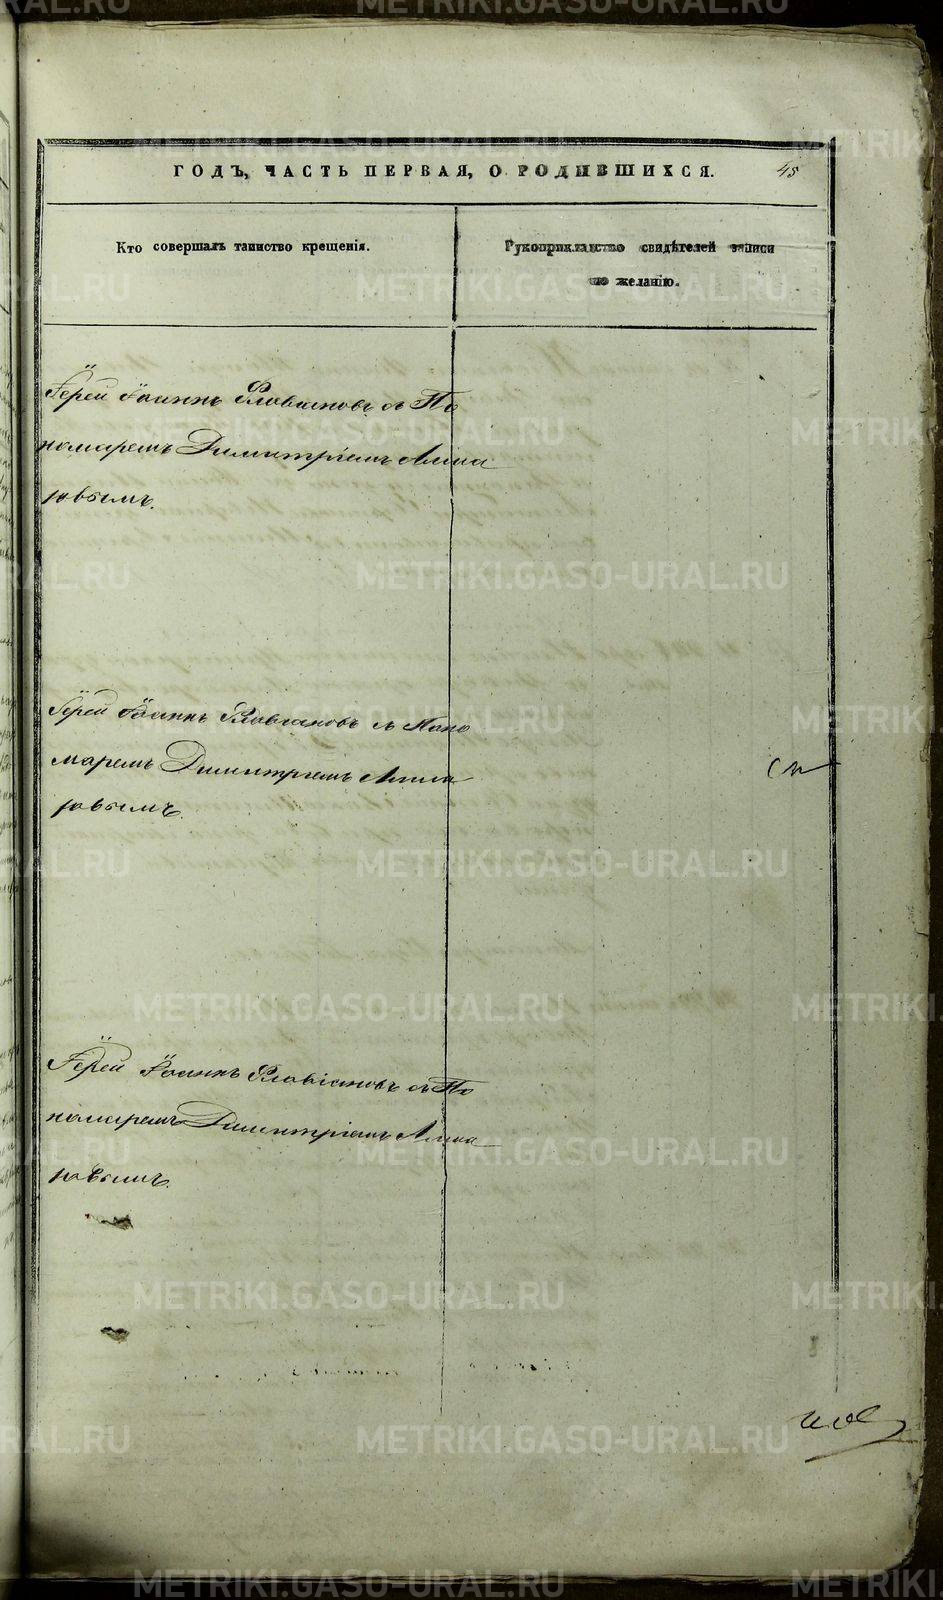 ГОДЪ, ЧАСТЬ ПЕРВАЯ, О РОДИВШИХСЯ. 45
Кто совершалъ таинство крещенія.
Рукоприкладство свидѣтелей записи
по желанію.
Іерей Іоаннъ Флавіановъ съ По
номаремъ Димитріемъ
Іерей Іоаннъ Флавіановъ съ Поно
маремъ Димитріемъ
Іерей Іоаннъ Флавіановъ съ По
номаремъ Димитріемъ
METRIKI.GASO-URAL.RU